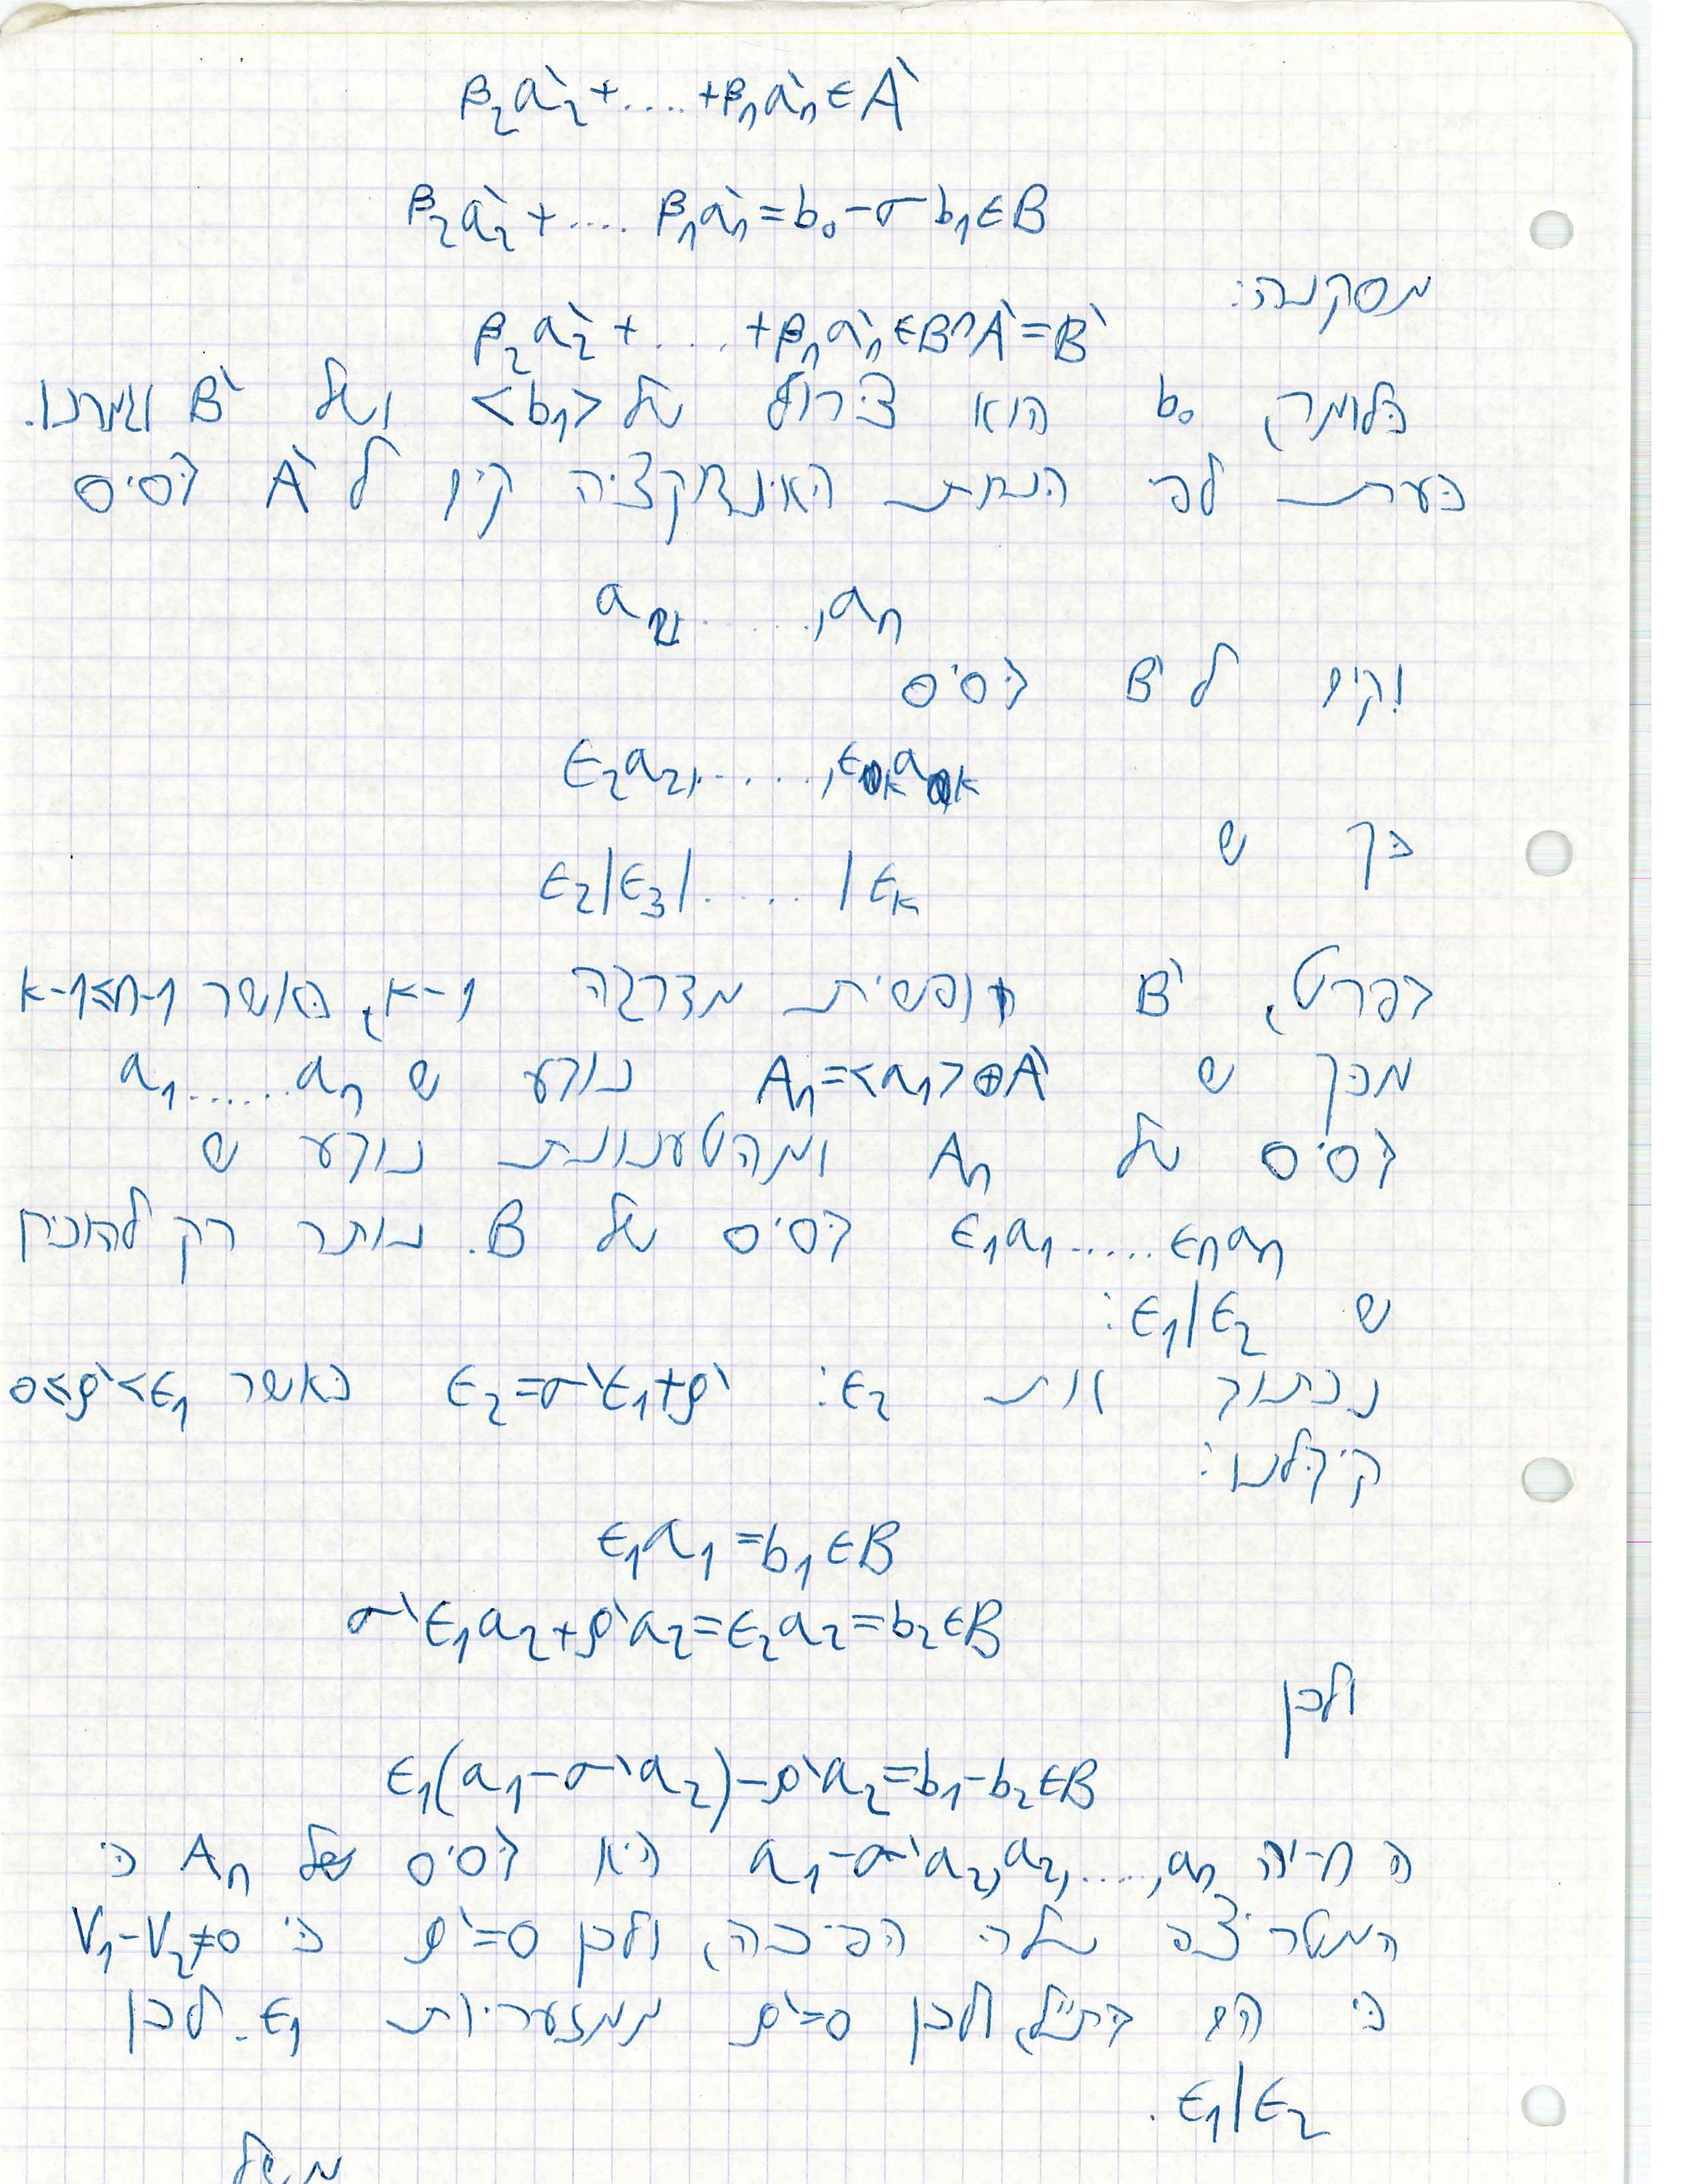 β₂a₂` + .... + βₙaₙ` ∈ A`
β₂a₂` + .... βₙaₙ` = b₀ - σb₁ ∈ B
מסקנה:
β₂a₂` + .... + βₙaₙ` ∈ B∩A` = B`
כלומר, b₀ הוא צירוף של <b₁> ושל B` וגמרנו.
כעת לפי הנחת האינדוקציה קיים ל A` בסיס
a₂,......,aₙ
וקיים ל B` בסיס
ϵ₂a₂,......,ϵₖaₖ
כך ש
ϵ₂|ϵ₃|......|ϵₖ
בפרט, B` חופשית מדרגה k-1, כאשר k-1≤n-1
מכך ש Aₙ=<a₁>⊕A` נובע ש a₁......aₙ
בסיס של Aₙ ומהטענות נובע ש
ϵ₁a₁.....ϵₙaₙ בסיס של B. נותר רק להוכיח
ש ϵ₁|ϵ₂:
נכתוב את ϵ₂: ϵ₂=σ`ϵ₁+ρ` כאשר 0≤ρ`<ϵ₁
קיבלנו:
ϵ₁a₁=b₁∈B
σ`ϵ₁a₂+ρ`a₂=ϵ₂a₂=b₂∈B
ולכן
ϵ₁(a₁-σ`a₂)-ρ`a₂=b₁-b₂∈B
ה n-יה a₁-σ`a₂,a₂,.....,aₙ היא בסיס של Aₙ כי
המטריצה שלה הפיכה, ולכן ρ`=0 כי V₁-V₂≠0
כי הם בת"ל, ולכן ρ`=0 ממזעריות ϵ₁. לכן
ϵ₁|ϵ₂.
משל